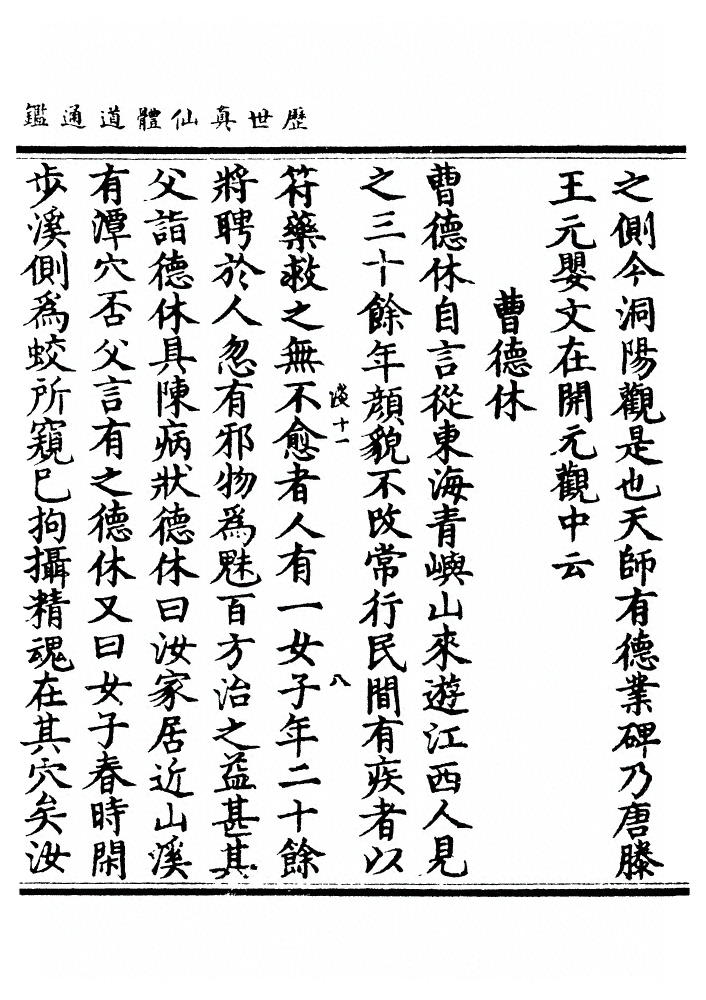 歷世真仙體道通鑑
之側今洞陽觀是也天師有德業碑乃唐滕
王元嬰文在開元觀中云
曹德休
曹德休自言從東海青嶼山來遊江西人見
之三十餘年顔貌不改常行民間有疾者以
淡十一
八
符藥救之無不愈者人有一女子年二十餘
將聘於人忽有邪物爲魅百方治之益甚其
父詣德休具陳病狀德休曰汝家居近山溪
有潭穴否父言有之德休又曰女子春時閑
步溪側爲蛟所窺已拘攝精魂在其穴矣汝